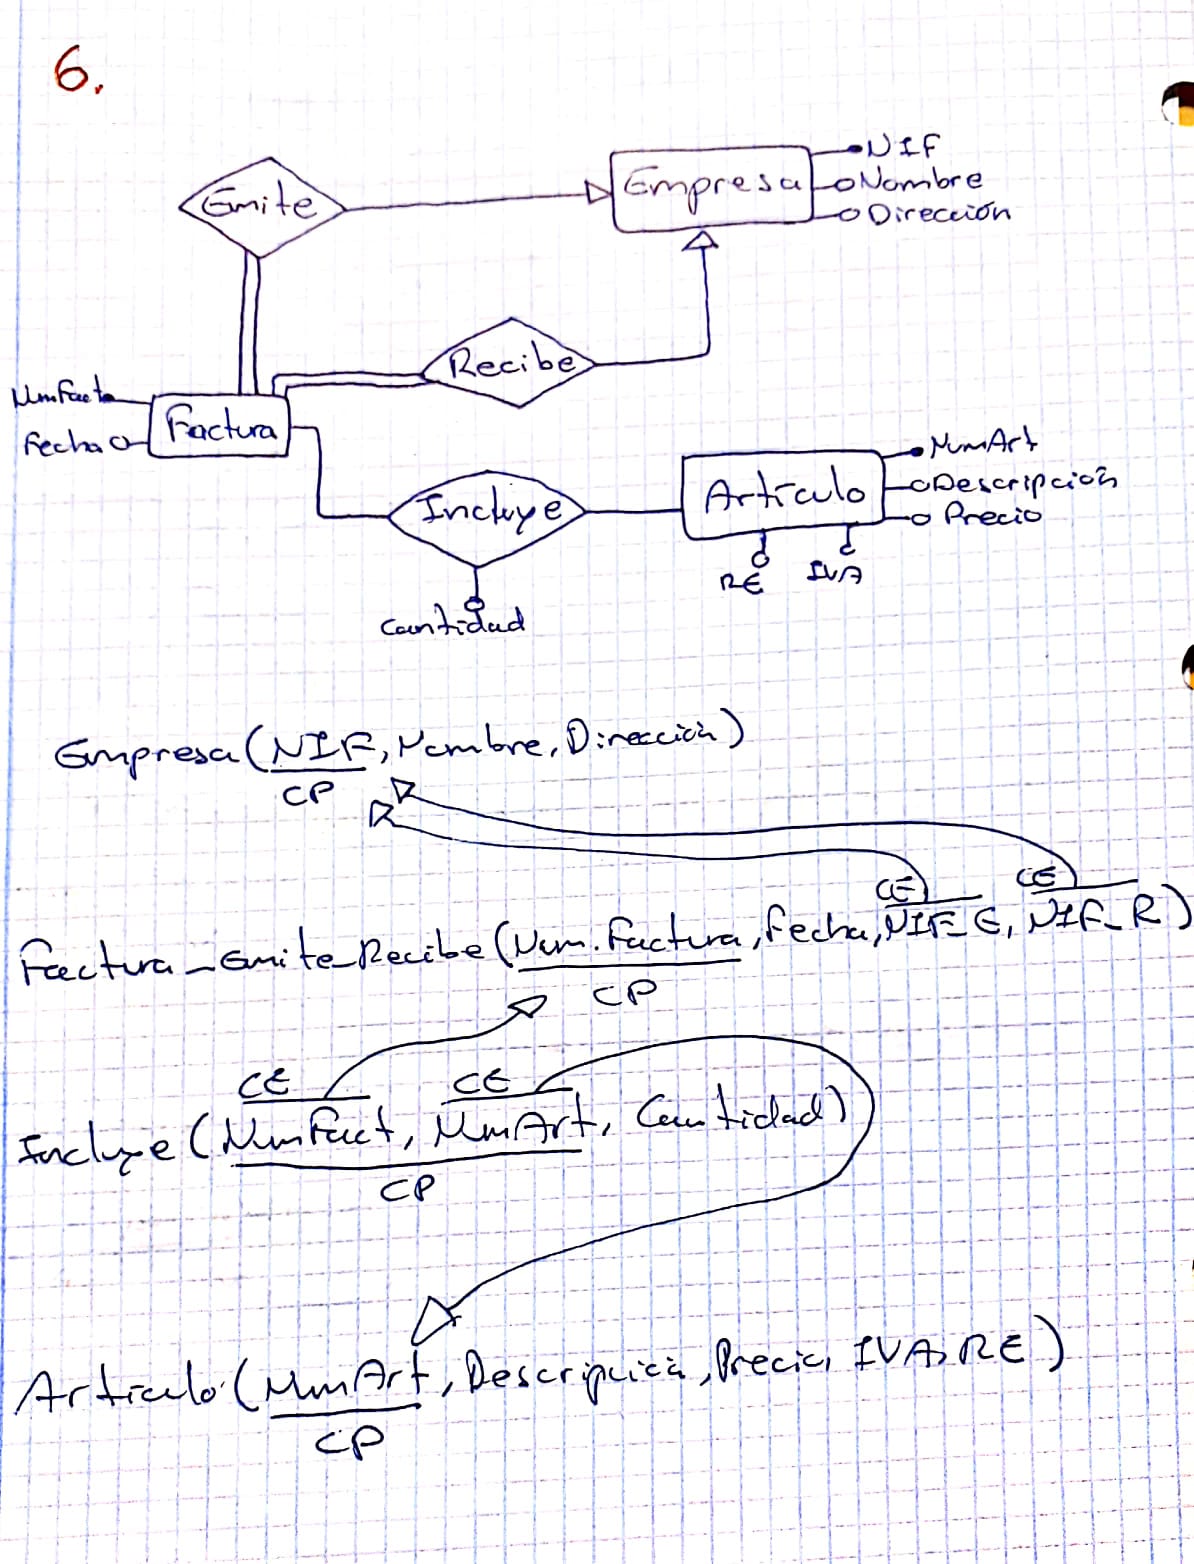 6.
Emite
Empresa
NIF
Nombre
Dirección
Recibe
NumFact
Fecha
Factura
Incluye
Cantidad
Artículo
NumArt
Descripción
Precio
RE
IVA
Empresa (NIF, Nombre, Dirección)
CP
CE CE
Factura_Emite_Recibe (Num.Factura, Fecha, NIF_E, NIF_R)
CP
CE CE
Incluye (NumFact, NumArt, Cantidad)
CP
Articulo (NumArt, Descripción, Precio, IVA, RE)
CP